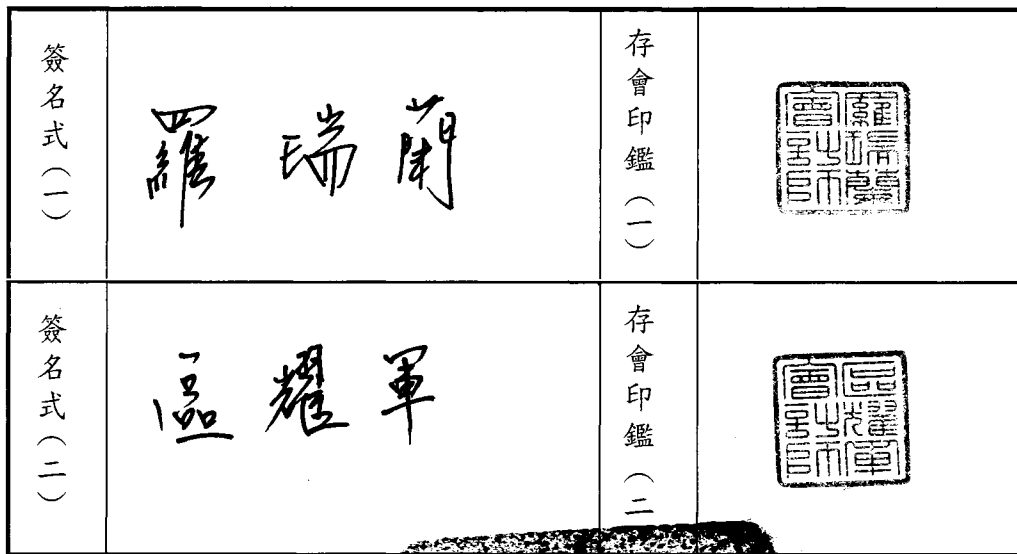 簽名式（一）
羅瑞蘭
存會印鑑（一）
羅瑞蘭會計師
簽名式（二）
區耀軍
存會印鑑（二
區耀軍會計師